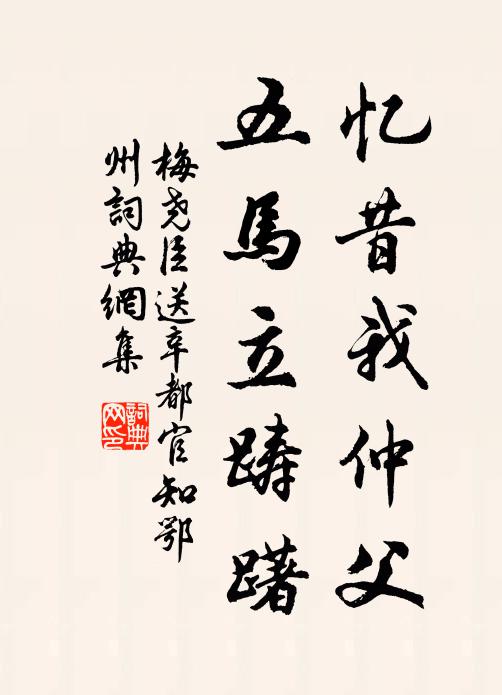 忆昔我仲父
五馬立踌躇
梅尧臣送辛都官知鄂
州詞典網集
詞典网印